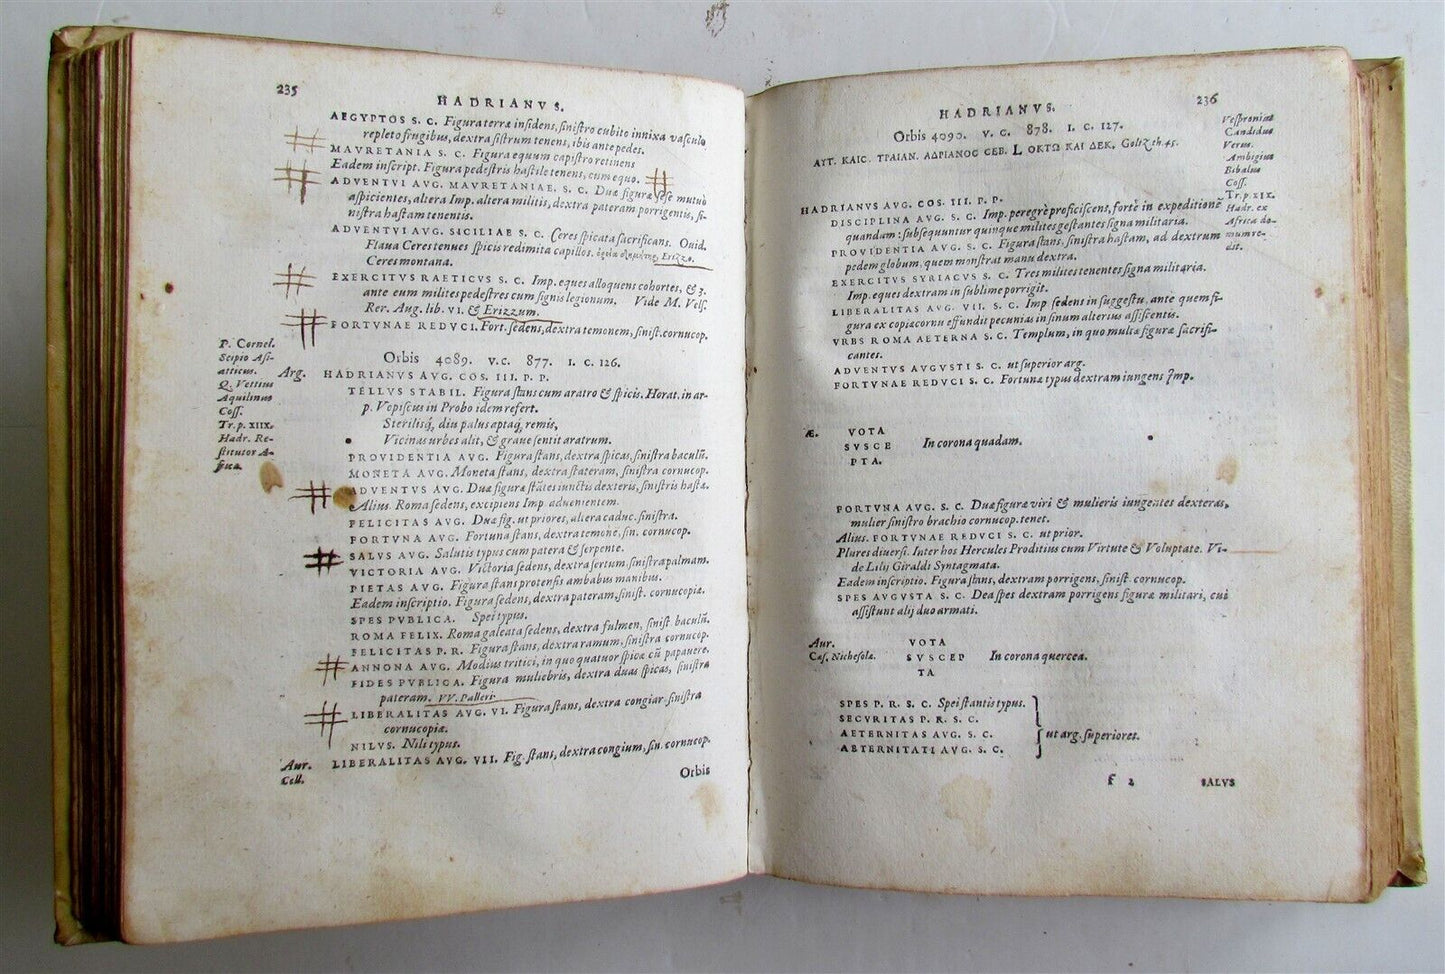 235
HADRIANVS.
AEGYPTOS S. C. Figura terræ insidens, sinistro cubito innixa vasculo
repleto frugibus, dextra sistrum tenens, ibis ante pedes.
MAVRETANIA S. C. Figura equum capistro retinens
Eadem inscript. Figura pedestris hastile tenens, cum equo.
ADVENTVI AVG. MAVRETANIAE. S. C. Duæ figuræ sese mutuò
aspicientes, altera Imp. altera militis, dextra pateram porrigentis, si-
nistra hastam tenentis.
ADVENTVI AVG. SICILIAE S. C. Ceres spicata sacrificans. Ouid.
Flaua Ceres tenues spicis redimita capillos. Erizzo.
Ceres montana.
EXERCITVS RAETICVS S. C. Imp. eques alloquens cohortes, & 3.
ante eum milites pedestres cum signis legionum. Vide M. Vels.
Rer. Aug. lib. VI. & Erizzum.
FORTVNAE REDVCI. Fort. sedens, dextra temonem, sinist. cornucop.
P. Cornel.
Scipio Asi-
aticus.
Q. Vettius
Aquilinus
Coss.
Tr. p. XIIX.
Hadr. Re-
stitutor A-
frica.
Orbis 4089. V.C. 877. I. C. 126.
Arg. HADRIANVS AVG. COS. III. P. P.
TELLVS STABIL. Figura stans cum aratro & spicis. Horat. in ar-
p. Vopiscus in Probo idem refert.
Sterilisq́, diu palus aptaq́, remis,
Vicinas urbes alit, & graue sentit aratrum.
PROVIDENTIA AVG. Figura stans, dextra spicas, sinistra baculũ.
MONETA AVG. Moneta stans, dextra stateram, sinistra cornucop.
ADVENTVS AVG. Duæ figuræ stãtes iunctis dexteris, sinistris hastæ.
Alius. Roma sedens, excipiens Imp aduenientem.
FELICITAS AVG. Duæ fig. ut priores, altera caduc. sinistra.
FORTVNA AVG. Fortuna stans, dextra temonẽ, sin. cornucop.
SALVS AVG. Salutis typus cum patera & serpente.
VICTORIA AVG. Victoria sedens, dextra sertum, sinistra palmam.
PIETAS AVG. Figura stans protensis ambabus manibus.
Eadem inscriptio. Figura sedens, dextra pateram, sinist. cornucopiæ.
SPES PVBLICA. Spei typus.
ROMA FELIX. Roma galeata sedens, dextra fulmen, sinist baculũ.
FELICITAS P. R. Figura stans, dextra ramum, sinistra cornucop.
ANNONA AVG. Modius tritici, in quo quatuor spicæ cũ papauere.
FIDES PVBLICA. Figura muliebris, dextra duas spicas, sinistra
pateram. VV. Palleri.
LIBERALITAS AVG. VI. Figura stans, dextra congiar. sinistra
cornucopiæ.
NILVS. Nili typus.
Aur. LIBERALITAS AVG. VII. Fig. stans, dextra congium, sin. cornucop.
Cell.
Orbis
236
HADRIANVS.
Orbis 4090. V. C. 878. I. C. 127.
ΑΥΤ. ΚΑΙC. ΤΡΑΙΑΝ. ΑΔΡΙΑΝΟC CΕΒ. L ΟΚΤΩ ΚΑΙ ΔΕΚ. Goltz. th. 45.
Vespronius
Candidus
Verus.
Ambigius
Bibalus
Coss.
Tr. p. XIX.
Hadr. ex
Africa do-
mum re-
dit.
HADRIANVS AVG. COS. III. P. P.
DISCIPLINA AVG. S. C. Imp. peregrè proficiscent, fortè in expeditionẽ
quandam: subsequuntur quinque milites gestantes signa militaria.
PROVIDENTIA AVG. S. C. Figura stans, sinistra hastam, ad dextrum
pedem globum, quem monstrat manu dextra.
EXERCITVS SYRIACVS S. C. Tres milites tenentes signa militaria.
Imp. eques dextram in sublime porrigit.
LIBERALITAS AVG. VII. S. C. Imp sedens in suggestu, ante quem fi-
gura ex copiæ cornu effundit pecunias in sinum alterius assistentis.
VRBS ROMA AETERNA S. C. Templum, in quo multæ figuræ sacrifi-
cantes.
ADVENTVS AVGVSTI S. C. ut superior arg.
FORTVNAE REDVCI S. C. Fortunæ typus dextram iungens Imp.
Æ. VOTA
SVSCE In corona quadam.
PTA.
FORTVNA AVG. S. C. Duæ figuræ viri & mulieris iungentes dexteras,
mulier sinistro brachio cornucop. tenet.
Alius. FORTVNAE REDVCI S. C. ut prior.
Plures diuersi. Inter hos Hercules Proditius cum Virtute & Voluptate. Vi-
de Lilij Giraldi Syntagmata.
Eadem inscriptio. Figura stans, dextram porrigens, sinist. cornucop.
SPES AVGVSTA S. C. Dea spes dextram porrigens figuræ militari, cuì
assistunt alij duo armati.
Aur. VOTA
Cæs. Nichesolæ. SVSCEP In corona quercea.
TA
SPES P. R. S. C. Spei stantis typus.
SECVRITAS P. R. S. C.
AETERNITAS AVG. S. C. ut arg. superiores.
AETERNITATI AVG. S. C.
f 2 SALVS